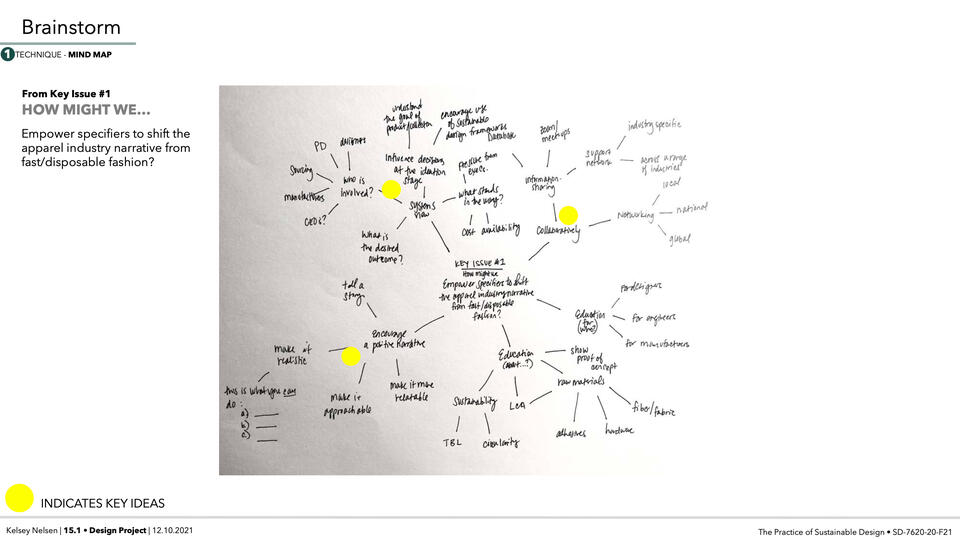 Brainstorm
1 TECHNIQUE - MIND MAP
From Key Issue #1
HOW MIGHT WE...
Empower specifiers to shift the
apparel industry narrative from
fast/disposable fashion?
understand
the goal of
product/collection
encourage use
of sustainable
design frameworks
Database
zoom/
meetups
industry specific
support
network
across a range
of industries
information-
sharing
local
Networking
national
global
Collaboratively
PD
designers
Sourcing
manufacturers
CEOs?
who is
involved?
Influence decisions
at the ideation
stage
systems
view
pressure from
what stands
in the way?
cost
availability
What is
the desired
outcome?
KEY ISSUE #1
How might we
Empower specifiers to shift
the apparel industry narrative
from fast/disposable
fashion?
tell a
story
encourage
a positive narrative
make it
realistic
this is what you can
do:
a)
b)
c)
make it
approachable
make it more
relatable
Education
(for
who?)
for designers
for engineers
for manufacturers
Education
show
proof of
concept
raw materials
Sustainability
LCA
TBL
circularity
adhesives
hardware
fiber/fabric
INDICATES KEY IDEAS
Kelsey Nelsen | 15.1 • Design Project | 12.10.2021
The Practice of Sustainable Design • SD-7620-20-F21